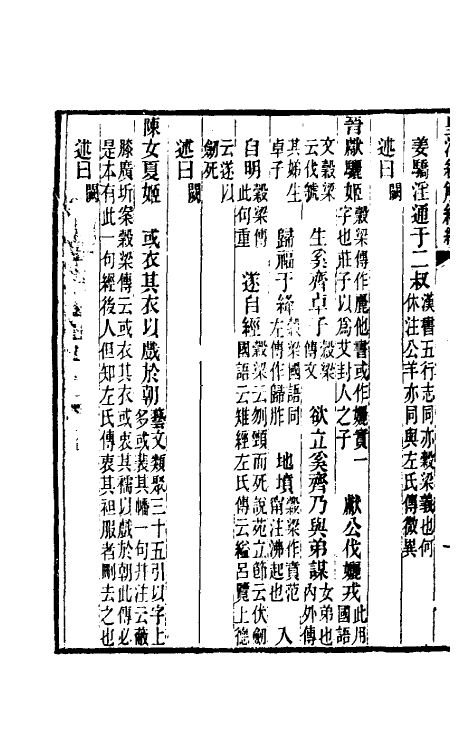 姜驕淫通于二叔漢書五行志同亦穀梁義也何休注公羊亦同與左氏傳微異
述曰闕
晉獻驪姬穀梁傳作麗他書或作孋實一字也莊子以爲艾封人之子 獻公伐孋戎此用國語
文穀梁云伐虢 生奚齊卓子穀梁傳文 欲立奚齊乃與弟謀女弟也內外傳
其娣生卓子 歸福于絳穀梁國語同左傳作歸胙 地墳穀梁作賁范甯注沸起也 入
自明穀梁傳此句重 遂自經穀梁傳云刎頸而死說苑立節云伏劒國語云雉經左氏傳云縊呂覽上德
云遂以劒死
述曰闕
陳女夏姬 或衣其衣以戲於朝藝文類聚三十五引以字上多或裴其幡一句并注云蔽
膝廣圻案穀梁傳云或衣其衣或衷其襦以戲於朝此傳必是本有此一句經後人但知左氏傳衷其衵服者刪去之也
述曰闕